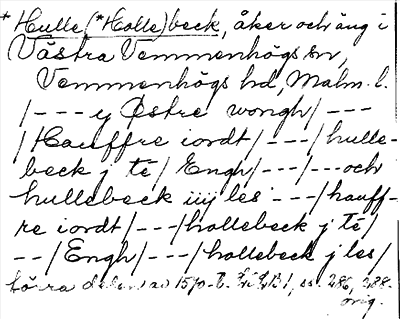 * Hulle (*Holle)beck, åker och äng i
Västra Vemmenhögs sn,
Vemmenhögs hd, Malm. l.
/--- y Østre wongh/---
/Hauffre iordt/---/hulle-
beck j te/ Engh/---/---och
hullebeck iiij les ---/hauff-
re iordt/---/hollebeck j te/
--/Engh/---/hollebeck j les/
1570 286, 288.
orig.